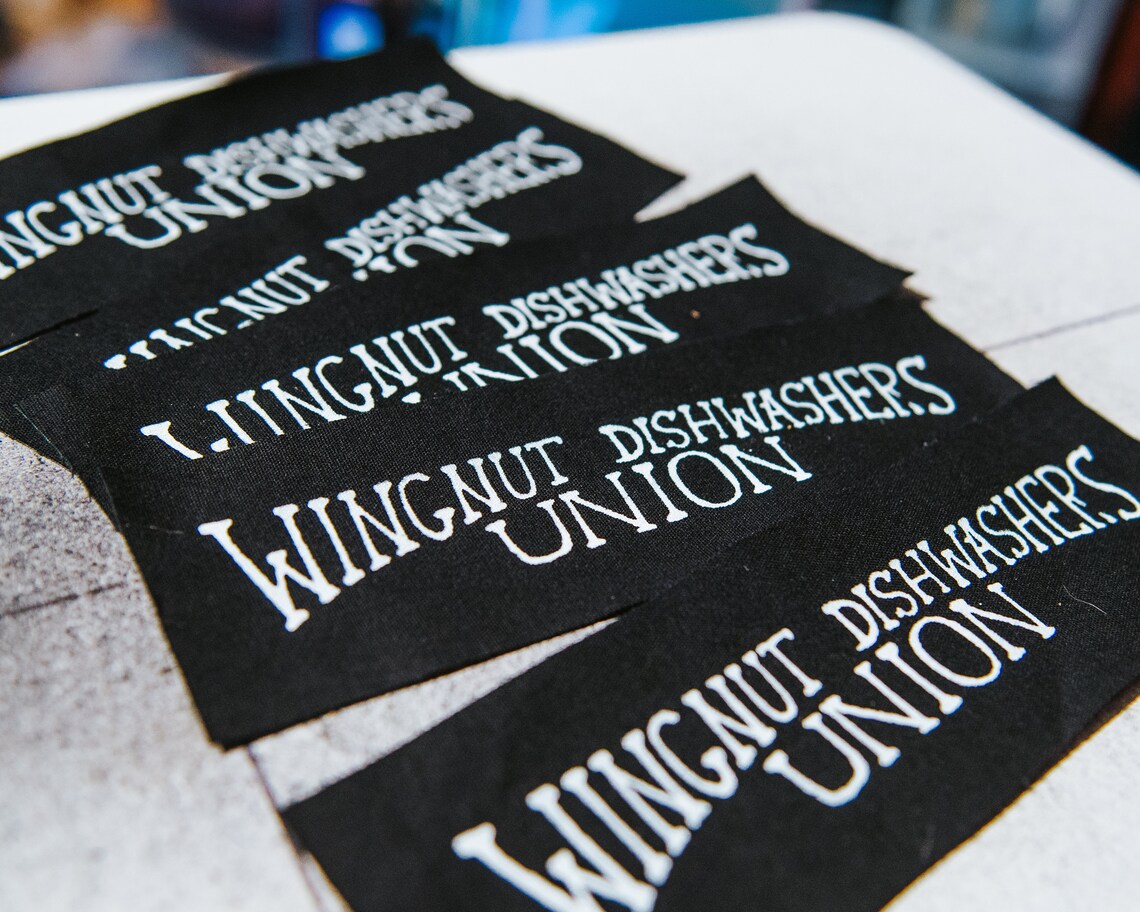 INGNUT DISHWASHERS
UNION
WINGNUT DISHWASHERS
UNION
WINGNUT DISHWASHERS
UNION
WINGNUT DISHWASHERS
UNION
WINGNUT DISHWASHERS
UNION